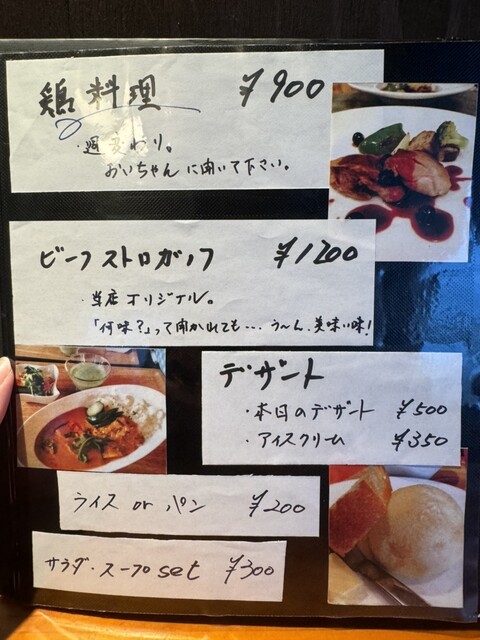 鶏料理 ¥900
・週変わり。
おいちゃんに聞いて下さい。
ビーフストロガノフ ¥1200
・当店オリジナル。
「何味?」って聞かれても…う〜ん、美味い味!
デザート
・本日のデザート ¥500
・アイスクリーム ¥350
ライス or パン ¥200
サラダ・スープ set ¥300